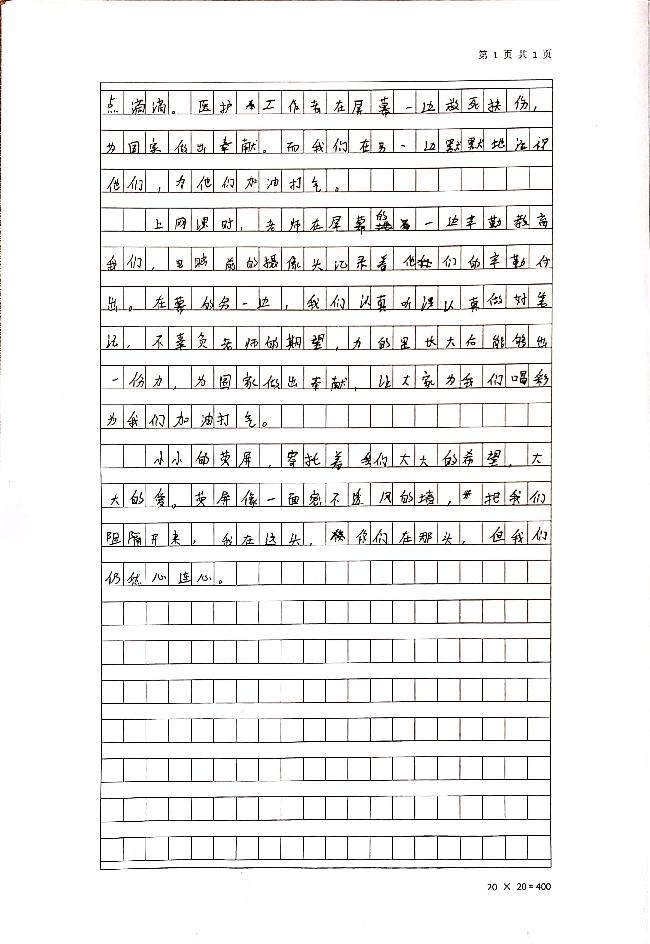 第 1 页 共 1 页
点滴滴。医护工作者在屏幕一边救死扶伤，
为国家做出奉献。而我们在另一边默默地注视
他们，为他们加油打气。
上网课时，老师在屏幕的另一边辛勤教育
我们，电脑前的摄像头记录着他们的辛勤付
出。在幕的另一边，我们认真听课认真做好笔
记，不辜负老师的期望，为的是长大后能够出
一份力，为国家做出奉献，让大家为我们喝彩
为我们加油打气。
小小的荧屏，寄托着我们大大的希望，大
大的爱。荧屏像一面密不透风的墙，把我们
阻隔开来，我在这头，你们在那头，但我们
仍然心连心。
20 × 20 = 400